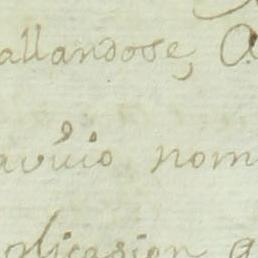 allandose, a
avicio nom
plicasion a